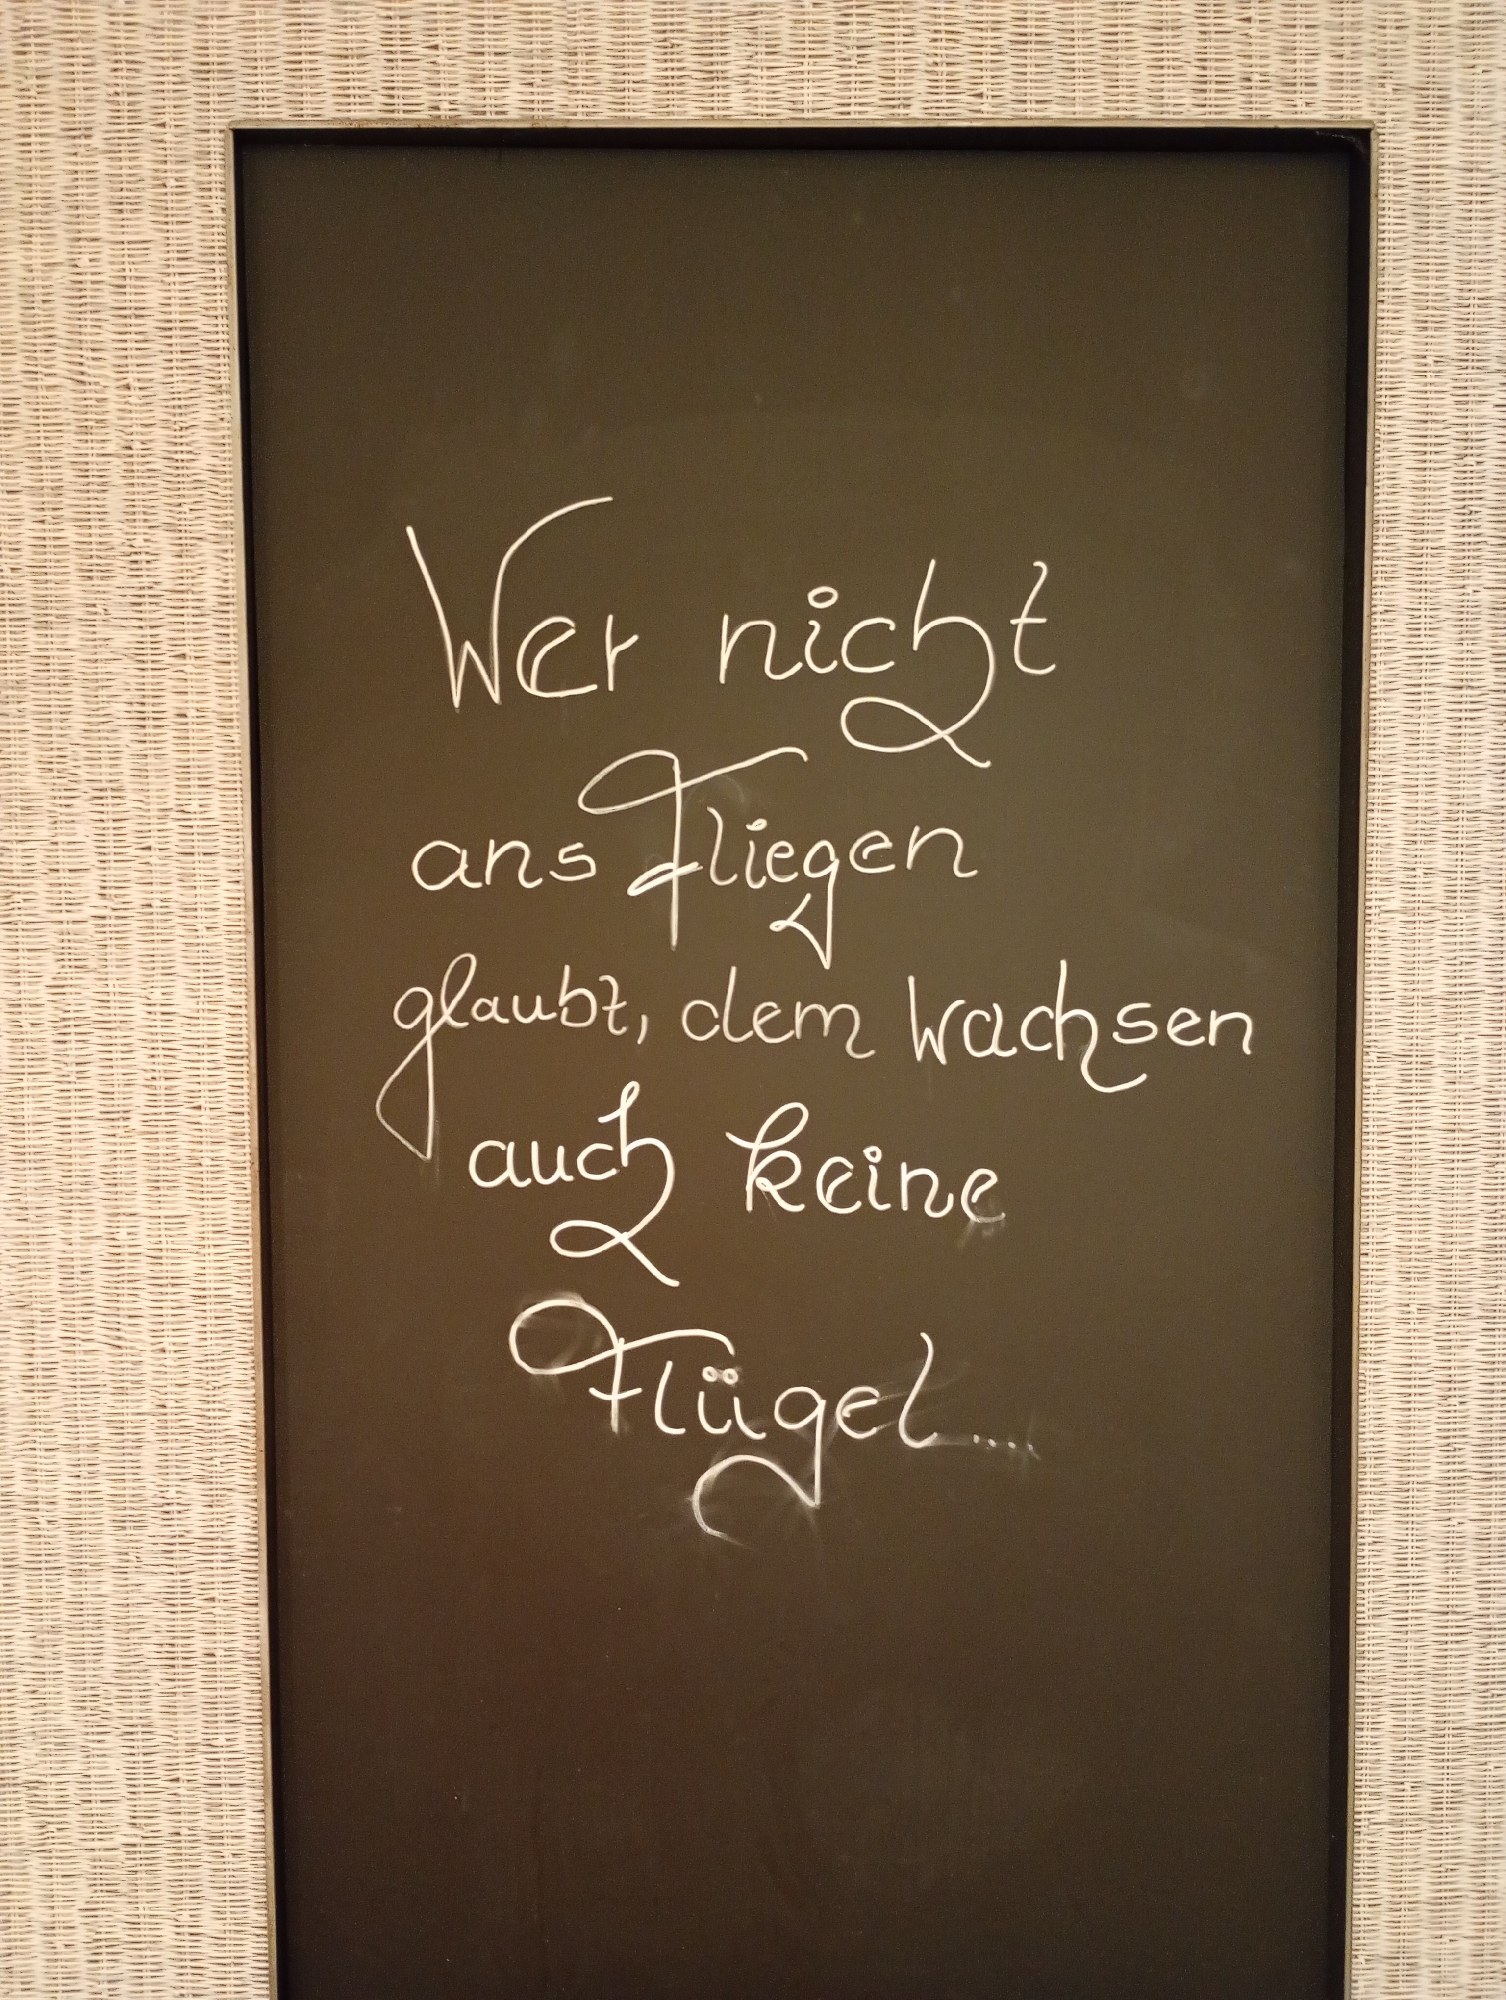 Wer nicht
ans Fliegen
glaubt, dem wachsen
auch keine
Flügel....